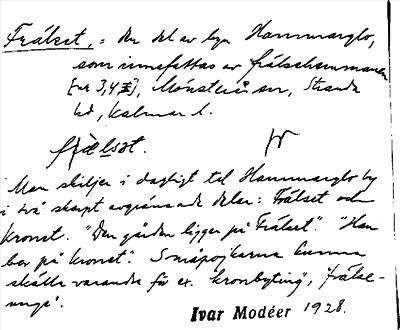 Frälset, = Den del av byn Hammarglo,
som innefattas av frälsehemmanen
[nr 3, 4 ], Mönsterås sn, Stranda
hd, Kalmar l.
frælsət.
Man skiljer i dagligt tal Hammarglo by
i två skarpt avgränsade delar: Frälset och
Kronst. "Den gården ligger på Frälset". "Han
bor på Kronst". Småpojkarna kunna
skälla varandra för ex. 'kronbyting', 'frälse-
unge'.
Ivar Modéer 1928.